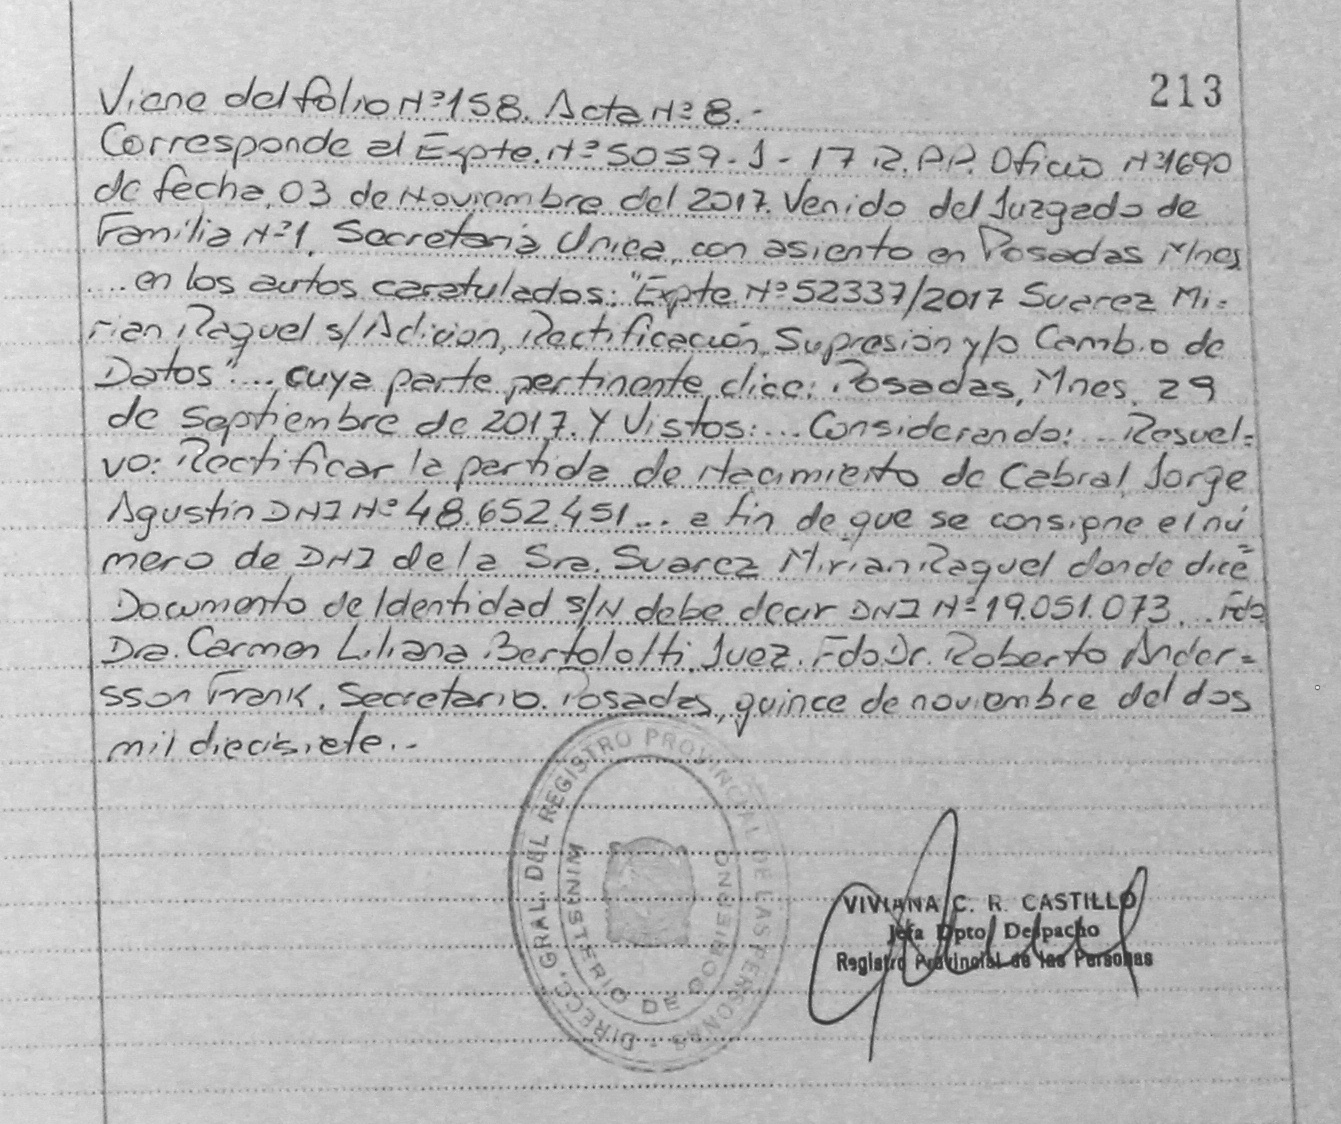 213
Viene del folio Nº158. Acta Nº 8.-
Corresponde al Expte. Nº 5059-J-17 R.P.P. Oficio Nº1690
de fecha, 03 de Noviembre del 2017. Venido del Juzgado de
Familia Nº1, Secretaria Unica, con asiento en Posadas Mnes
....en los autos caratulados: "Expte Nº 52337/2017 Suarez Mi-
rian Raquel s/Adicion, Rectificación, Supresión y/o Cambio de
Datos".... cuya parte pertinente, dice: Posadas, Mnes. 29
de Septiembre de 2017. Y Vistos:... Considerando:... Resuel-
vo: Rectificar la partida de Nacimiento de Cabral, Jorge
Agustin DNI Nº 48.652.451... a fin de que se consigne el nú
mero de DNI de la Sra. Suarez Mirian Raquel donde dice
Documento de Identidad S/N debe decir DNI Nº 19.051.073... Fdo
Dra. Carmen Liliana Bertolotti Juez. Fdo. Dr. Roberto Ander-
sson Frank, Secretario. Posadas, quince de noviembre del dos
mil diecisiete.-
DIRECC. GRAL. DEL REGISTRO PROVINCIAL DE LAS PERSONAS
MINISTERIO DE GOBIERNO
VIVIANA C. R. CASTILLO
Jefa Dpto. Despacho
Registro Provincial de las Personas